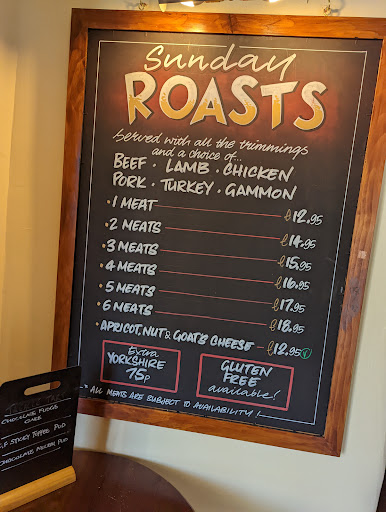 Sunday
ROASTS
served with all the trimmings
and a choice of...
BEEF · LAMB · CHICKEN
PORK · TURKEY · GAMMON
· 1 MEAT £12.95
· 2 MEATS £14.95
· 3 MEATS £15.95
· 4 MEATS £16.95
· 5 MEATS £17.95
· 6 MEATS £18.95
· APRICOT, NUT & GOATS CHEESE £12.95 V
Extra
YORKSHIRE
75p
GLUTEN
FREE
available!
· ALL MEATS ARE SUBJECT TO AVAILABILITY!
CHOCOLATE FUDGE
CAKE
STICKY TOFFEE PUD
CHOCOLATE MELTEN PUD